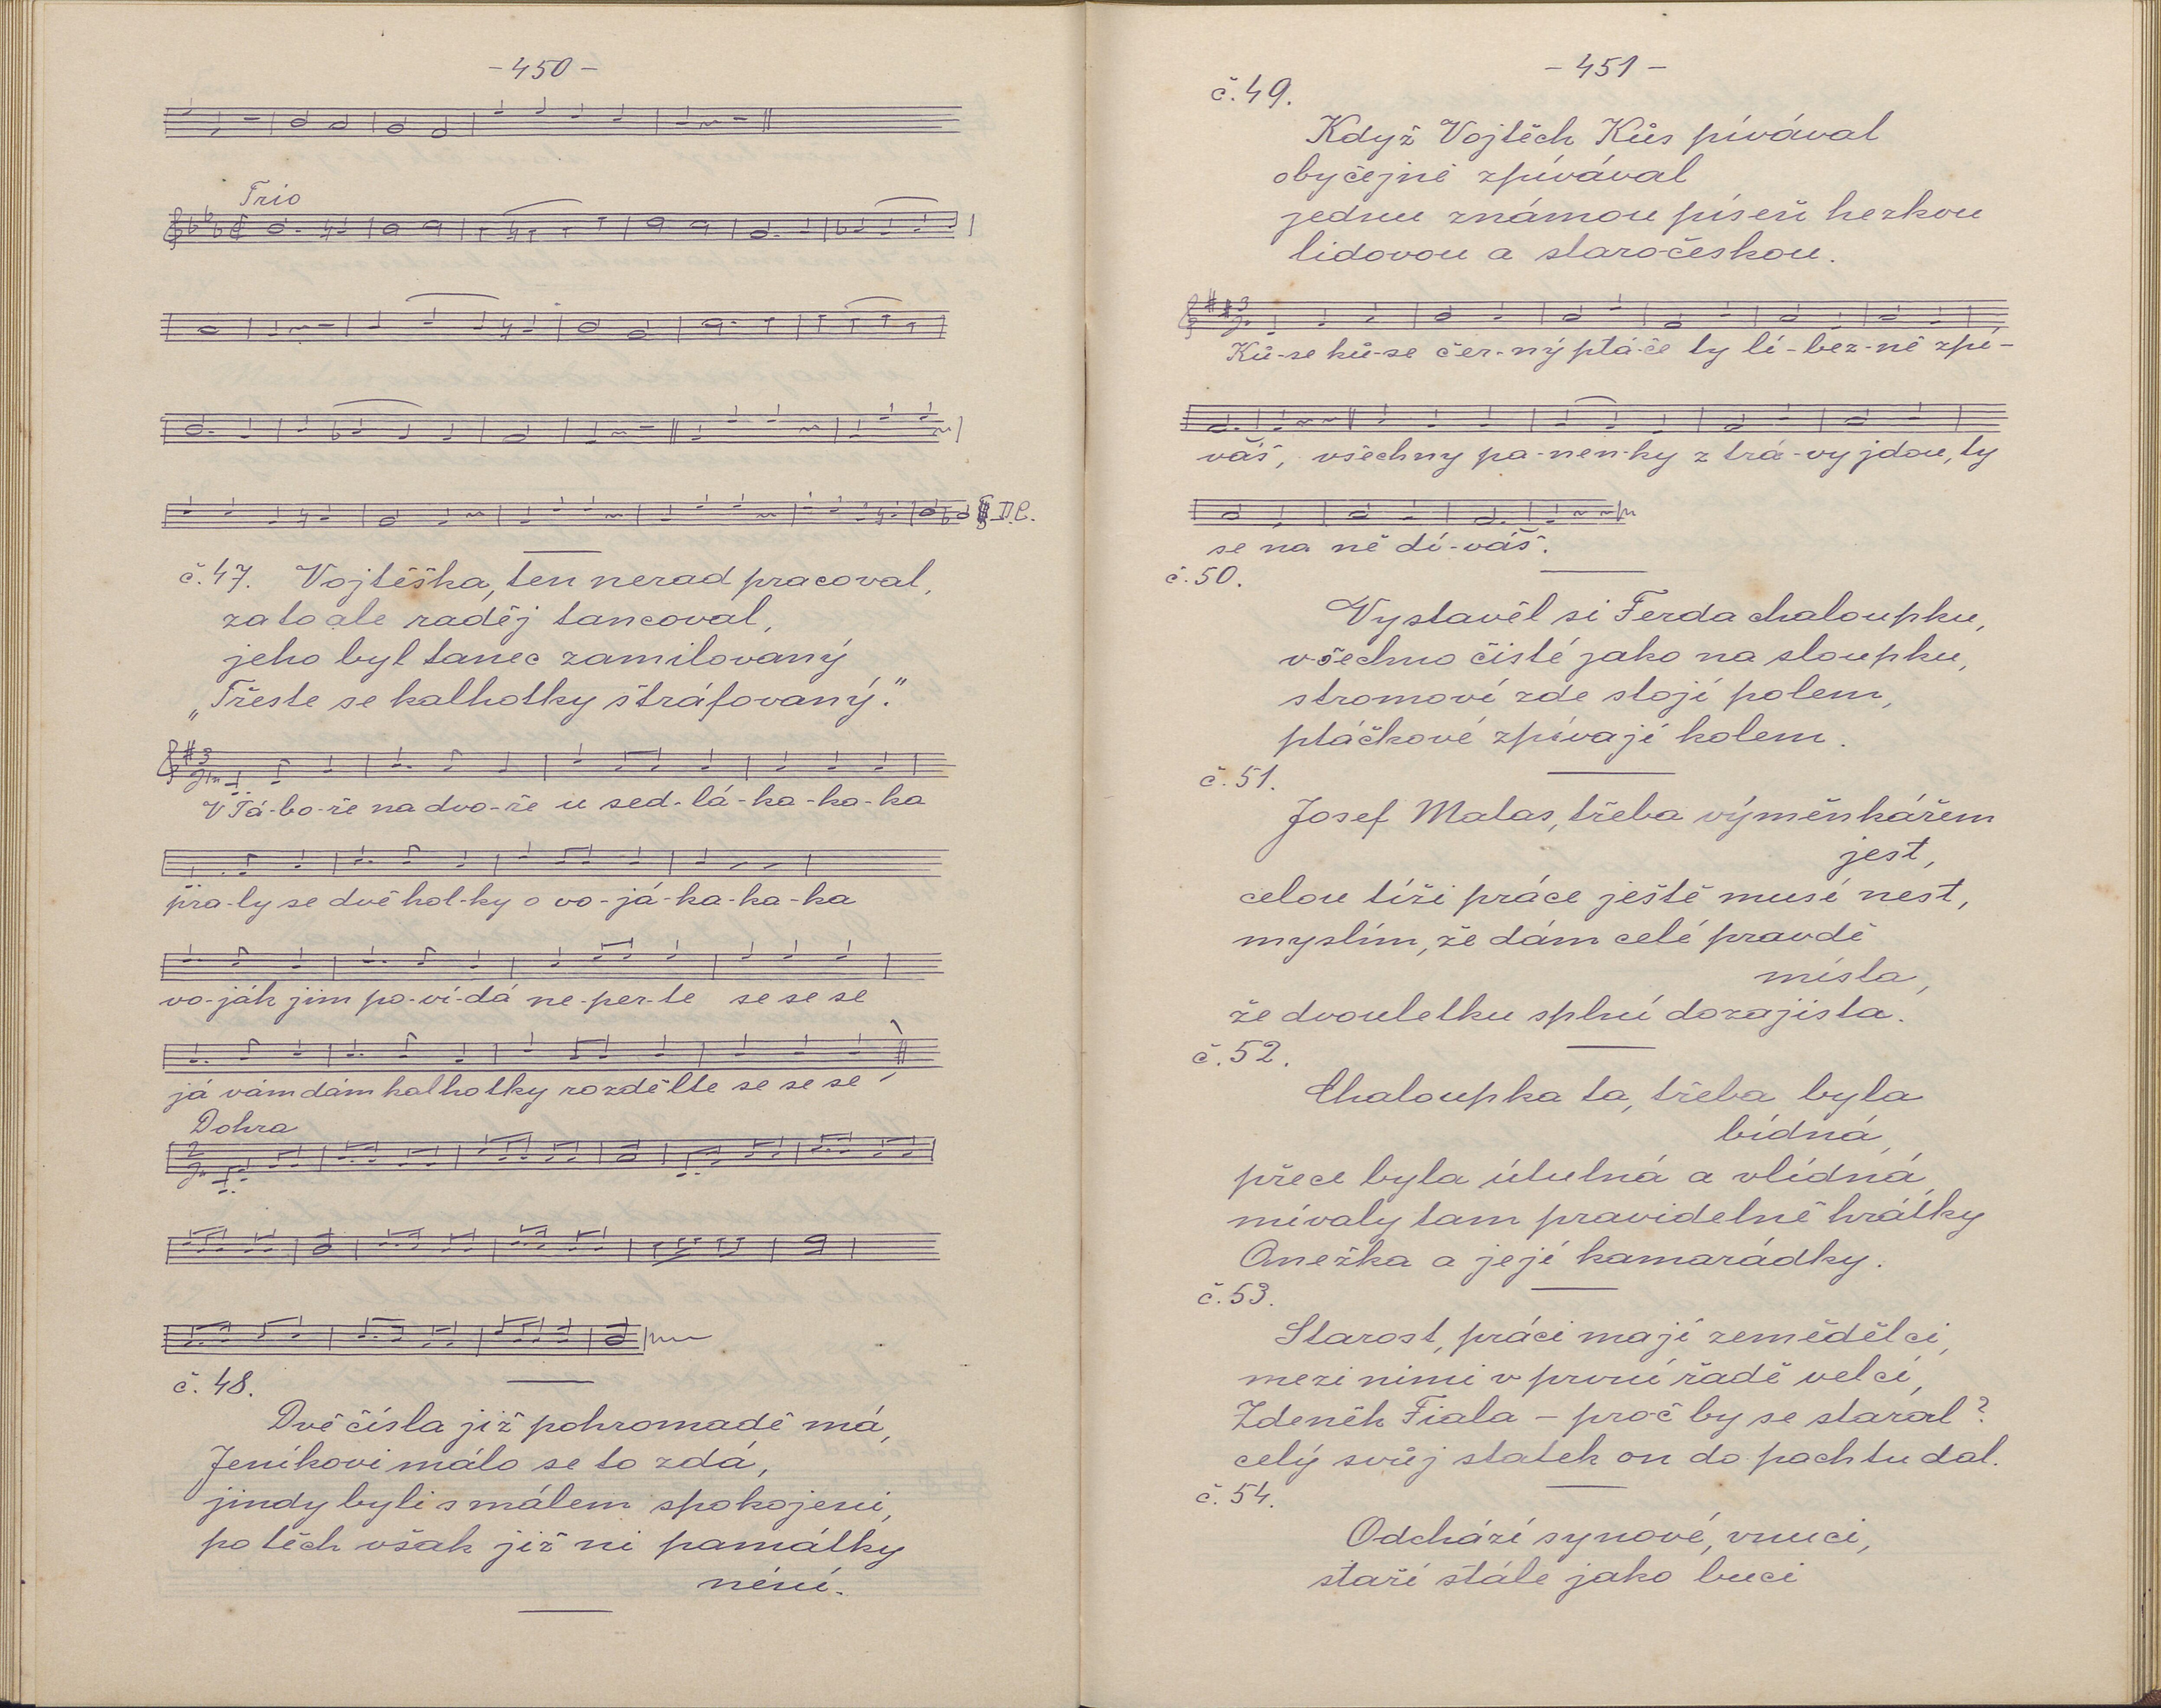 - 450 -
Trio
D.C.
č. 47. Vojtěška, ten nerad pracoval,
za to ale raděj tancoval,
jeho byl tanec zamilovaný
„Třeste se kalhotky štráfovaný."
V Tá-bo-ře na dvo-ře u sed-lá-ka-ka-ka
pra-ly se dvě hol-ky o vo-já-ka-ka-ka
vo-ják jim po-ví-dá ne-per-te se se se
já vám dám kalhotky rozdělte se se se
Dohra
č. 48.
Dvě čísla již pohromadě má,
Jeníkovi málo se to zdá,
jindy byli s málem spokojeni,
po těch však již ni památky
néní.
- 451 -
č. 49.
Když Vojtěch Kůs pívával
obyčejně zpívával
jednu známou píseň hezkou
lidovou a staročeskou.
Ků-se ků-se čer-ný ptá-če ty li-bez-ně zpí-
váš, všechny pa-nen-ky z trá-vy jdou, ty
se na ně dí-váš.
č. 50.
Vystavěl si Ferda chaloupku,
všechno čisté jako na sloupku,
stromoví zde stojí polem,
ptáčkové zpívají kolem.
č. 51.
Josef Malas, třeba výměnkářem
jest,
celou tíži práce ještě musí nest,
myslím, že dám celé pravdě
místa,
že dvouletku splní dozajista.
č. 52.
Chaloupka ta, třeba byla
bídná,
přece byla útulná a vlídná,
mívaly tam pravidelně hrátky
Anežka a její kamarádky.
č. 53.
Starost, práci mají zemědělci,
mezi nimi v první řadě velcí,
Zdeněk Fiala - proč by se staral?
celý svůj statek on do pachtu dal.
č. 54.
Odchází synové, vnuci,
staří stále jako buci